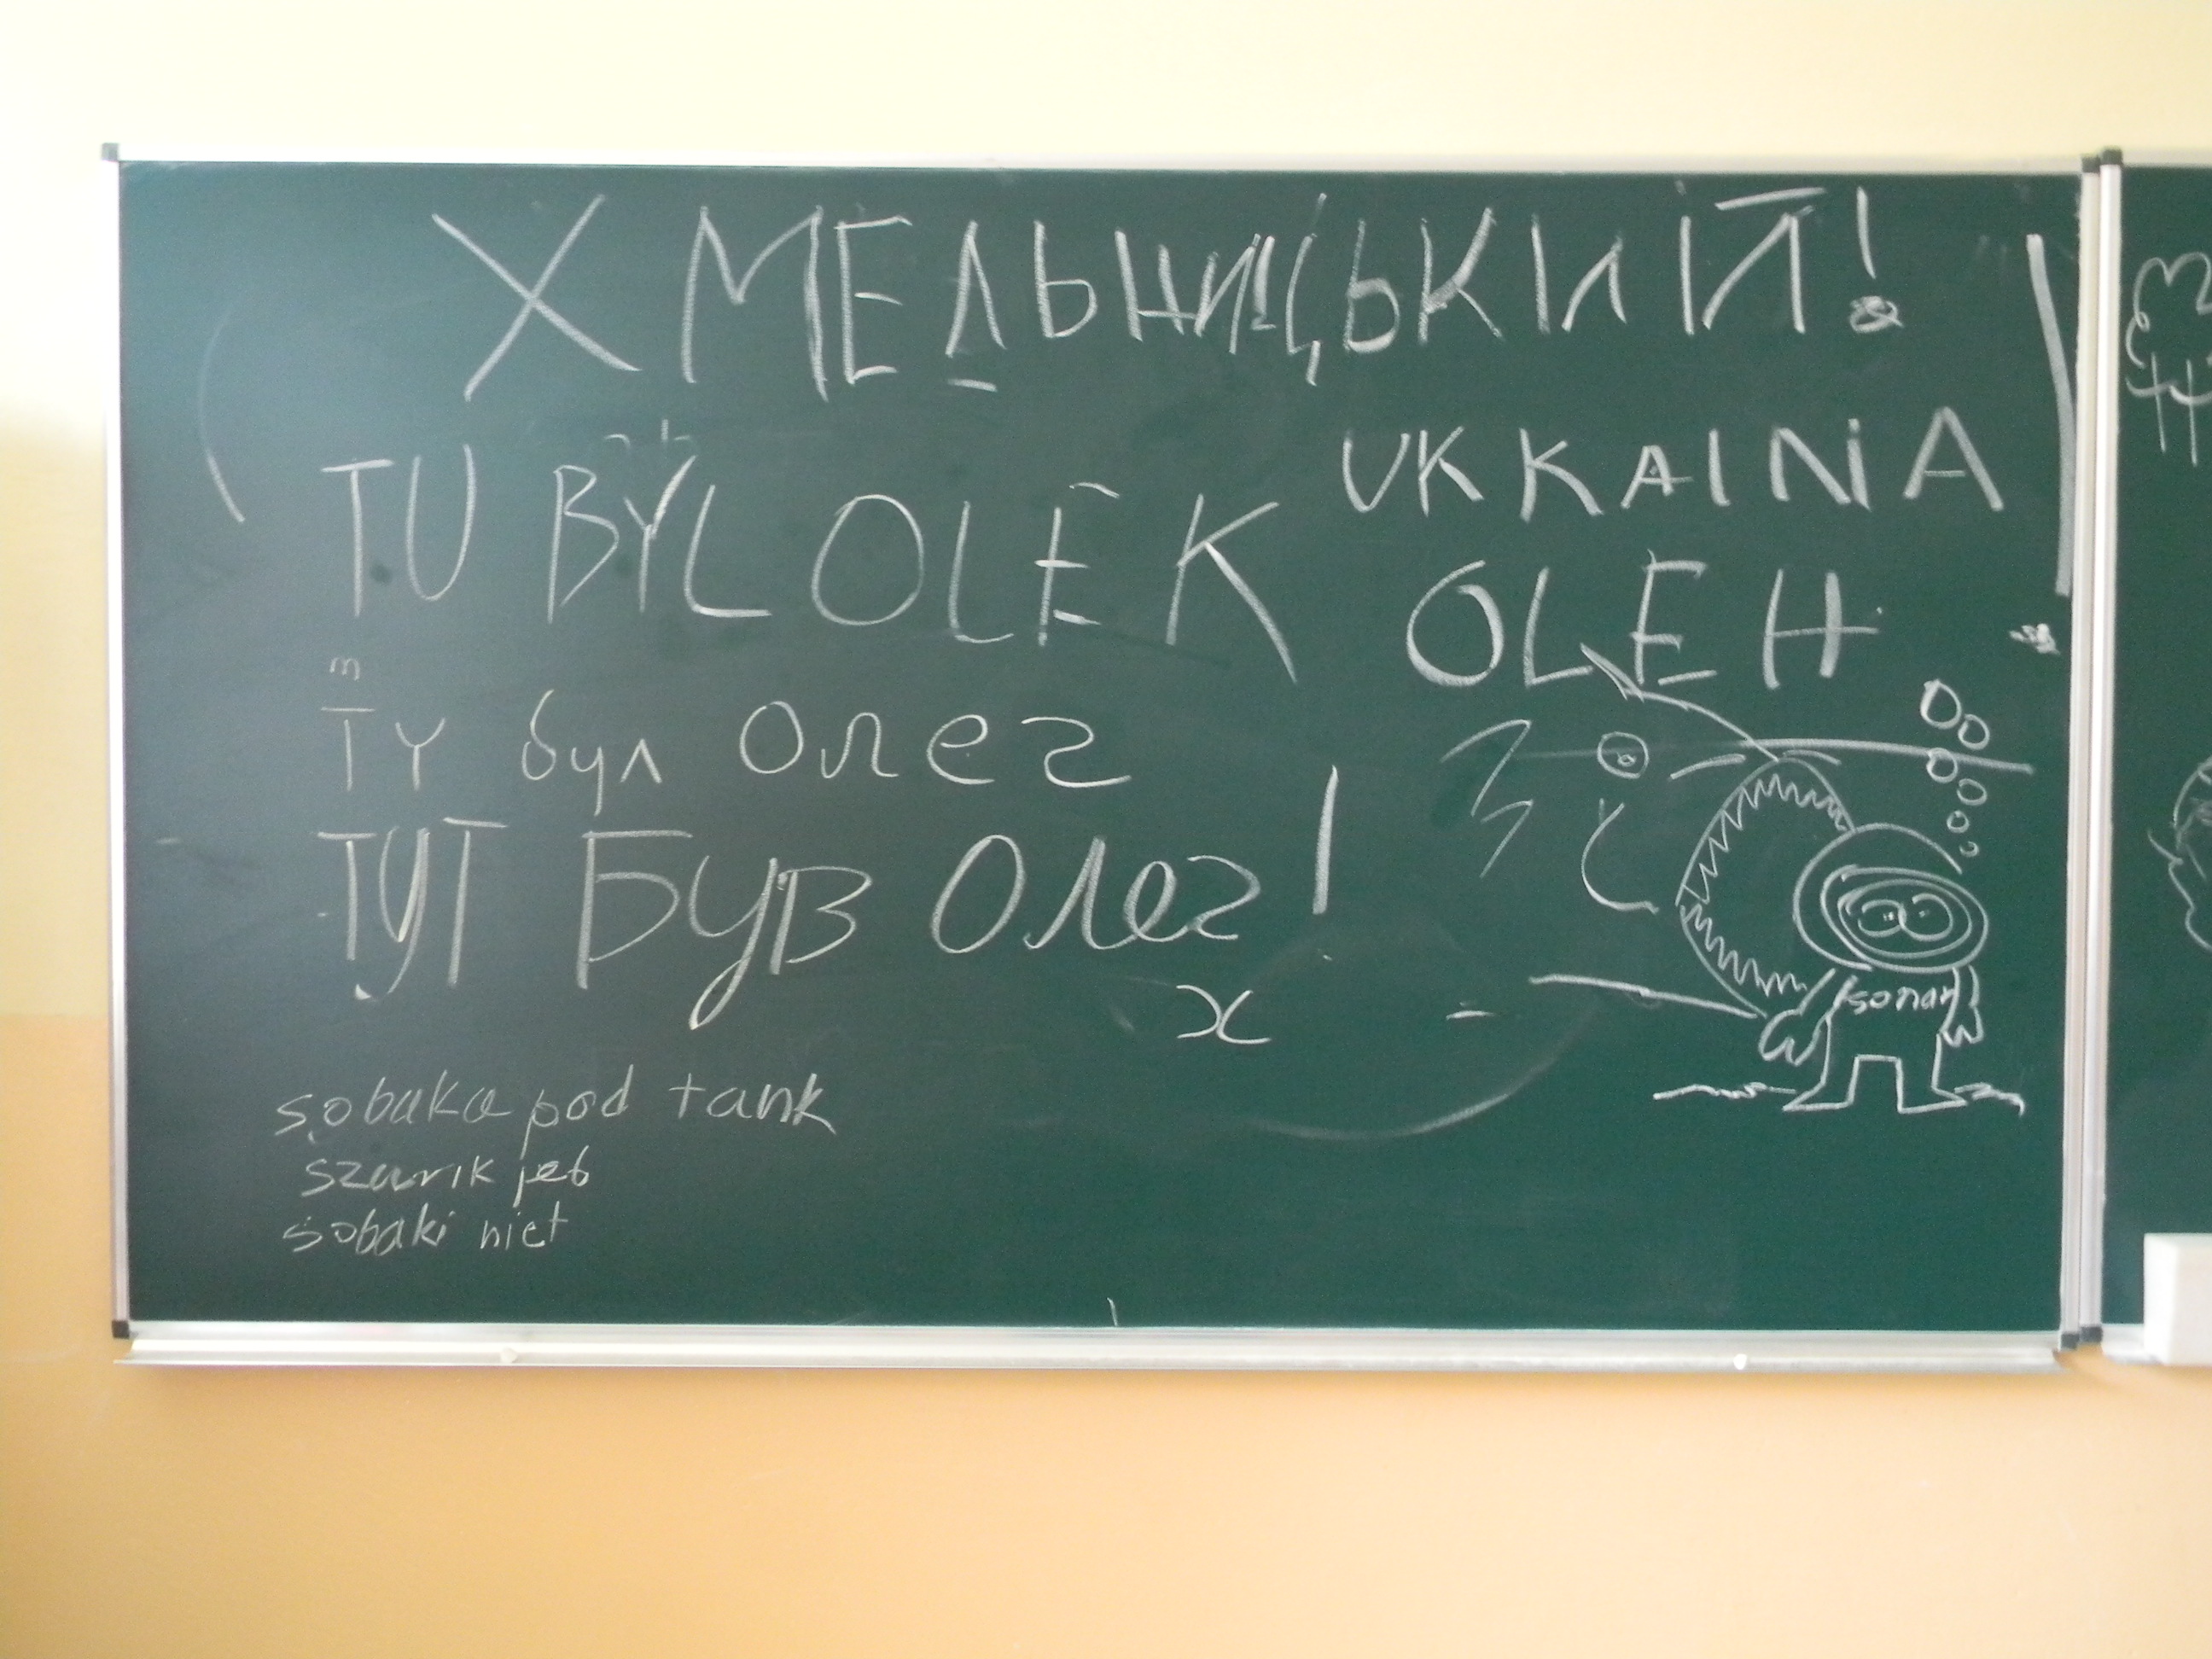 ХМЕЛЬНИЦЬКИЙ!
TU BYL OLEK
UKKAINA
OLEH
т
Ту бул Олег
ТУТ БУВ Олег!
x
sonar
sobaka pod tank
szarik jeb
sobaki niet